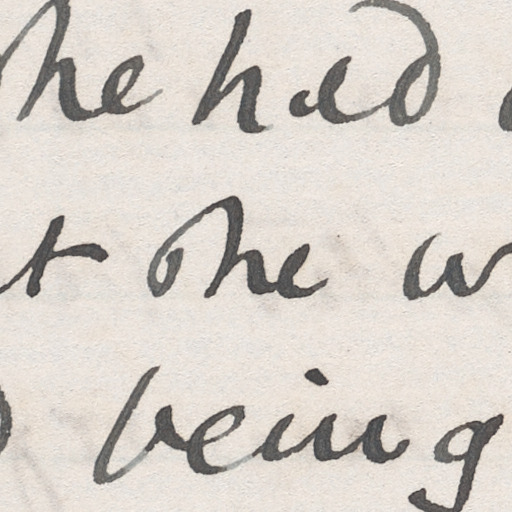 he had
t she w
being